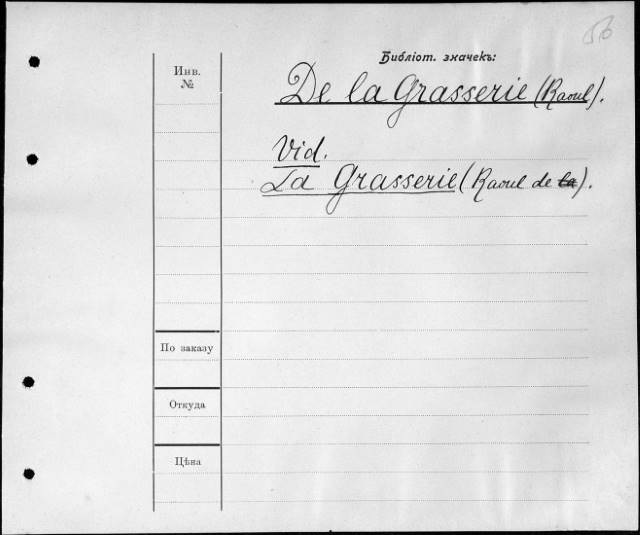 56
Библіот. значекъ:
Инв.
№
De la Grasserie (Raoul).
Vid.
La Grasserie (Raoul de la).
По заказу
Откуда
Цѣна